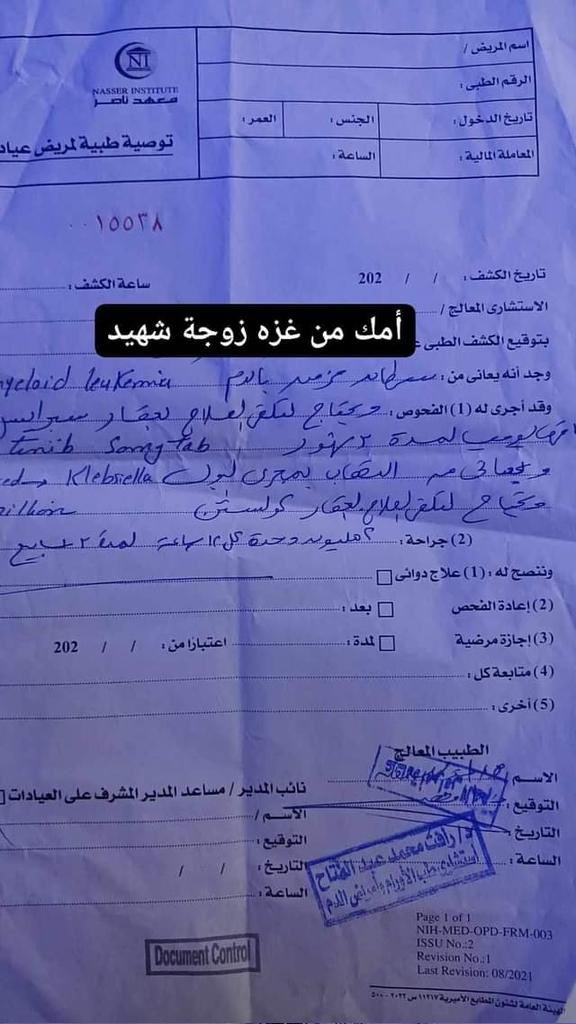 NI
NASSER INSTITUTE
معهد ناصر
توصية طبية لمريض عياد
اسم المريض /
الرقم الطبى :
تاريخ الدخول : الجنس : العمر :
المعاملة المالية : الساعة :
٠٠١٥٥٣٨
تاريخ الكشف : / / 202 ساعة الكشف :
الاستشارى المعالج /
أمك من غزه زوجة شهيد
بتوقيع الكشف الطبى ع
وجد أنه يعانى من : سرطان مزمن بالدم myeloid leukemia
وقد أجرى له (1) الفحوص : ويحتاج لتكفى لعلاج لعقار
tinib 50mg tab لمدة ٣ شهور
ويعانى من التهاب بمجرى البول Klebsiella
ويحتاج لتكفى لعلاج لعقار كولستين
(2) جراحة : ٢ مليون وحدة كل ١٢ ساعة لمدة ٢ اسابيع
وننصح له : (1) علاج دوائى
(2) إعادة الفحص بعد :
(3) إجازة مرضية لمدة : اعتبارا من : / / 202
(4) متابعة كل :
(5) أخرى :
الطبيب المعالج
الاسم
التوقيع :
التاريخ :
الساعة :
نائب المدير / مساعد المدير المشرف على العيادات
الاسم /
التوقيع :
التاريخ : / /
الساعة :
د/ رأفت محمد عبد الفتاح
استشارى طب الأورام وأمراض الدم
Document Control
Page 1 of 1
NIH-MED-OPD-FRM-003
ISSU No.:2
Revision No.:1
Last Revision: 08/2021
الهيئة العامة لشئون المطابع الأميرية ١١٢١٧ س ٢٠٢٢ - ٥٠٠